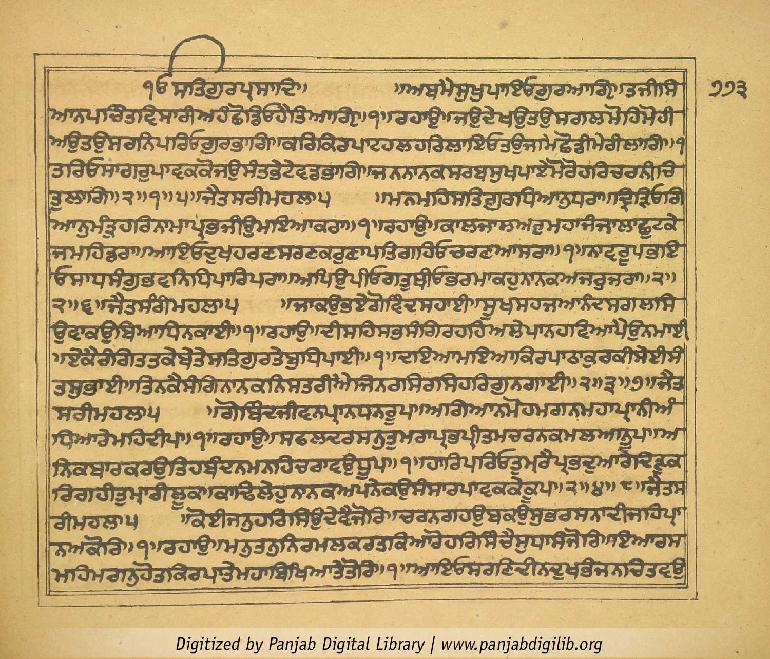 ੭੭੩
ੴ ਸਤਿਗੁਰਪ੍ਰਸਾਦਿ॥ ॥ਅਬਮੈਸੁਖੁਪਾਇਓਗੁਰਆਗ੍ਯਿ॥ਤਜੀਸਿ
ਆਨਪਚਿੰਤਵਿਸਾਰੀਅਹੰਛੋਡਿਓਹੈਤਿਆਗ੍ਯਿ॥੧॥ਰਹਾਉ॥ਜਉਦੇਖਉਤਉਸਗਲਮੋਹਿਮੋਹੀ
ਅਉਤਉਸਰਨਿਪਰਿਓਗੁਰਭਾਗਿ॥ਕਰਿਕਿਰਪਾਟਹਲਹਰਿਲਾਇਓਤਉਜਮਿਛੋਡੀਮੋਰੀਲਾਗਿ॥੧
ਤਰਿਓਸਾਗਰੁਪਾਵਕਕੋਜਉਸੰਤਭੇਟੇਵਡਭਾਗਿ॥ਜਨਨਾਨਕਸਰਬਸੁਖਪਾਏਮੋਰੋਹਰਿਚਰਨੀਚਿ
ਤੁਲਾਗਿ॥੨॥੧॥੫॥ਜੈਤਸਰੀਮਹਲਾ੫ ॥ਮਨਮਹਿਸਤਿਗੁਰਧਿਆਨੁਧਰਾ॥ਦ੍ਰਿੜਿਓਗਿ
ਆਨੁਮੰਤ੍ਰੁਹਰਿਨਾਮਾਪ੍ਰਭਜੀਉਮਾਇਆਕਰਾ॥੧॥ਰਹਾਉ॥ਕਾਲਜਾਲਅਰੁਮਹਾਜੰਜਾਲਾਛੁਟਕੇ
ਜਮਹਿਡਰਾ॥ਆਇਓਦੁਖਹਰਣਸਰਣਕਰੁਣਾਪਤਿਗਹਿਓਚਰਣਆਸਰਾ॥੧॥ਨਾਵਰੂਪਭਇ
ਓਸਾਧਸੰਗੁਭਵਨਿਧਿਪਾਰਿਪਰਾ॥ਅਪਿਉਪੀਓਗਤੁਥੀਓਭਰਮਾਕਹੁਨਾਨਕਅਜਰੁਜਰਾ॥੨॥
੨॥੬॥ਜੈਤਸਰੀਮਹਲਾ੫ ॥ਜਾਕਉਭਏਗੋਵਿੰਦਸਹਾਈ॥ਸੂਖਸਹਜਆਨੰਦਸਗਲਸਿ
ਉਵਾਕਉਬਿਆਧਿਨਕਾਈ॥੧॥ਰਹਾਉ॥ਦੀਸਹਿਸਭਸੰਗਿਰਹਹਿਅਲੇਪਾਨਹਵਿਆਪੈਉਨਮਾਈ
॥ਏਕੈਰੰਗਿਤਤਕੇਬੇਤੇਸਤਿਗੁਰਤੇਬੁਧਿਪਾਈ॥੧॥ਦਇਆਮਇਆਕਿਰਪਾਠਾਕੁਰਕੀਸੇਈਸੰ
ਤਸੁਭਾਈ॥ਤਿਨਕੈਸੰਗਿਨਾਨਕਨਿਸਤਰੀਐਜਿਨਰਸਿਰਸਿਹਰਿਗੁਨਗਾਈ॥੨॥੩॥੭॥ਜੈਤ
ਸਰੀਮਹਲਾ੫ ॥ਗੋਬਿੰਦਜੀਵਨਪ੍ਰਾਨਧਨਰੂਪ॥ਅਗਿਆਨਮੋਹਮਗਨਮਹਾਪ੍ਰਾਨੀਅੰ
ਧਿਆਰੇਮਹਿਦੀਪ॥੧॥ਰਹਾਉ॥ਸਫਲਦਰਸਨੁਤੁਮਰਾਪ੍ਰਭਪ੍ਰੀਤਮਚਰਨਕਮਲਆਨੂਪ॥ਅ
ਨਿਕਬਾਰਕਰਉਤਿਹਬੰਦਨਮਨਹਿਚਰਾਵਉਧੂਪ॥੧॥ਹਾਰਿਪਰਿਓਤੁਮਰੈਪ੍ਰਭਦੁਆਰੈਦ੍ਰਿੜੁਕ
ਰਿਗਹੀਤੁਮਾਰੀਲੂਕ॥ਕਾਢਿਲੇਹੁਨਾਨਕਅਪੁਨੇਕਉਸੰਸਾਰਪਾਵਕਕੇਕੂਪ॥੨॥੪॥੮॥ਜੈਤਸ
ਰੀਮਹਲਾ੫ ॥ਕੋਈਜਨੁਹਰਿਸਿਉਦੇਵੈਜੋਰਿ॥ਚਰਨਗਹਉਬਕਉਸੁਭਰਸਨਾਦੀਜਹਿਪ੍ਰਾ
ਨਅਕੋਰਿ॥੧॥ਰਹਾਉ॥ਮਨੁਤਨੁਨਿਰਮਲਕਰਤਕਿਆਰੋਹਰਿਸਿੰਚੈਸੁਧਾਸੰਜੋਰਿ॥ਇਆਰਸ
ਮਹਿਮਗਨੁਹੋਤਕਿਰਪਾਤੇਮਹਾਬਿਖਿਆਤੇਤੋਰਿ॥੧॥ਆਇਓਸਰਣਿਦੀਨਦੁਖਭੰਜਨਚਿਤਵਉ
Digitized by Panjab Digital Library | www.panjabdigilib.org